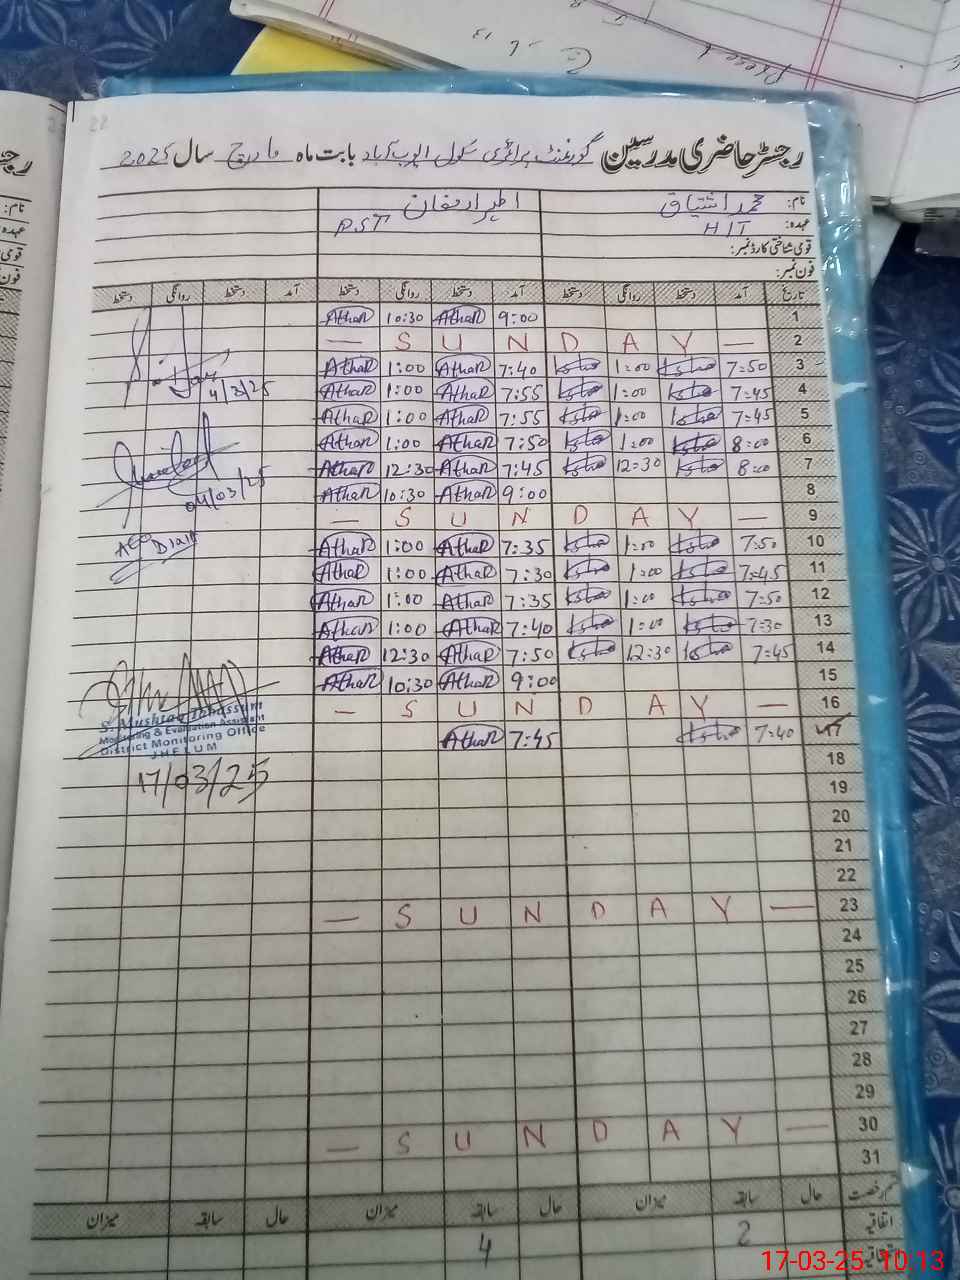 رجسٹر حاضری مدرسین گورنمنٹ پرائمری سکول ایوب آباد بابت ماہ مارچ سال 2025
نام: محمد اشتیاق اطہر
عہدہ: HIT PST
قومی شناختی کارڈ نمبر:
فون نمبر:
تاریخ آمد دستخط روانگی دستخط آمد دستخط روانگی دستخط آمد دستخط روانگی دستخط
1 9:00 Athar 10:30 Athar
2 — S U N D A Y —
3 7:50 1:00 7:40 Athar 1:00 Athar
4 7:45 1:00 7:55 Athar 1:00 Athar
5 7:45 1:00 7:55 Athar 1:00 Athar
6 8:00 1:00 7:50 Athar 1:00 Athar
7 8:00 12:30 7:45 Athar 12:30 Athar
8 9:00 Athar 10:30 Athar
9 — S U N D A Y —
10 7:50 1:00 7:35 Athar 1:00 Athar
11 7:45 1:00 7:30 Athar 1:00 Athar
12 7:50 1:00 7:35 Athar 1:00 Athar
13 7:30 1:00 7:40 Athar 1:00 Athar
14 7:45 12:30 7:50 Athar 12:30 Athar
15 9:00 Athar 10:30 Athar
16 — S U N D A Y —
17 7:40 7:45 Athar
18
19
20
21
22
23 — S U N D A Y —
24
25
26
27
28
29
30 — S U N D A Y —
31
4/3/25
04/03/25
S. Mushtaq Tabassum
Monitoring & Evaluation Assistant
District Monitoring Office
JHELUM
17/03/25
حال سابقہ میزان حال سابقہ میزان حال سابقہ میزان
اتفاقیہ 2 4
22
Present
17-03-25 10:13